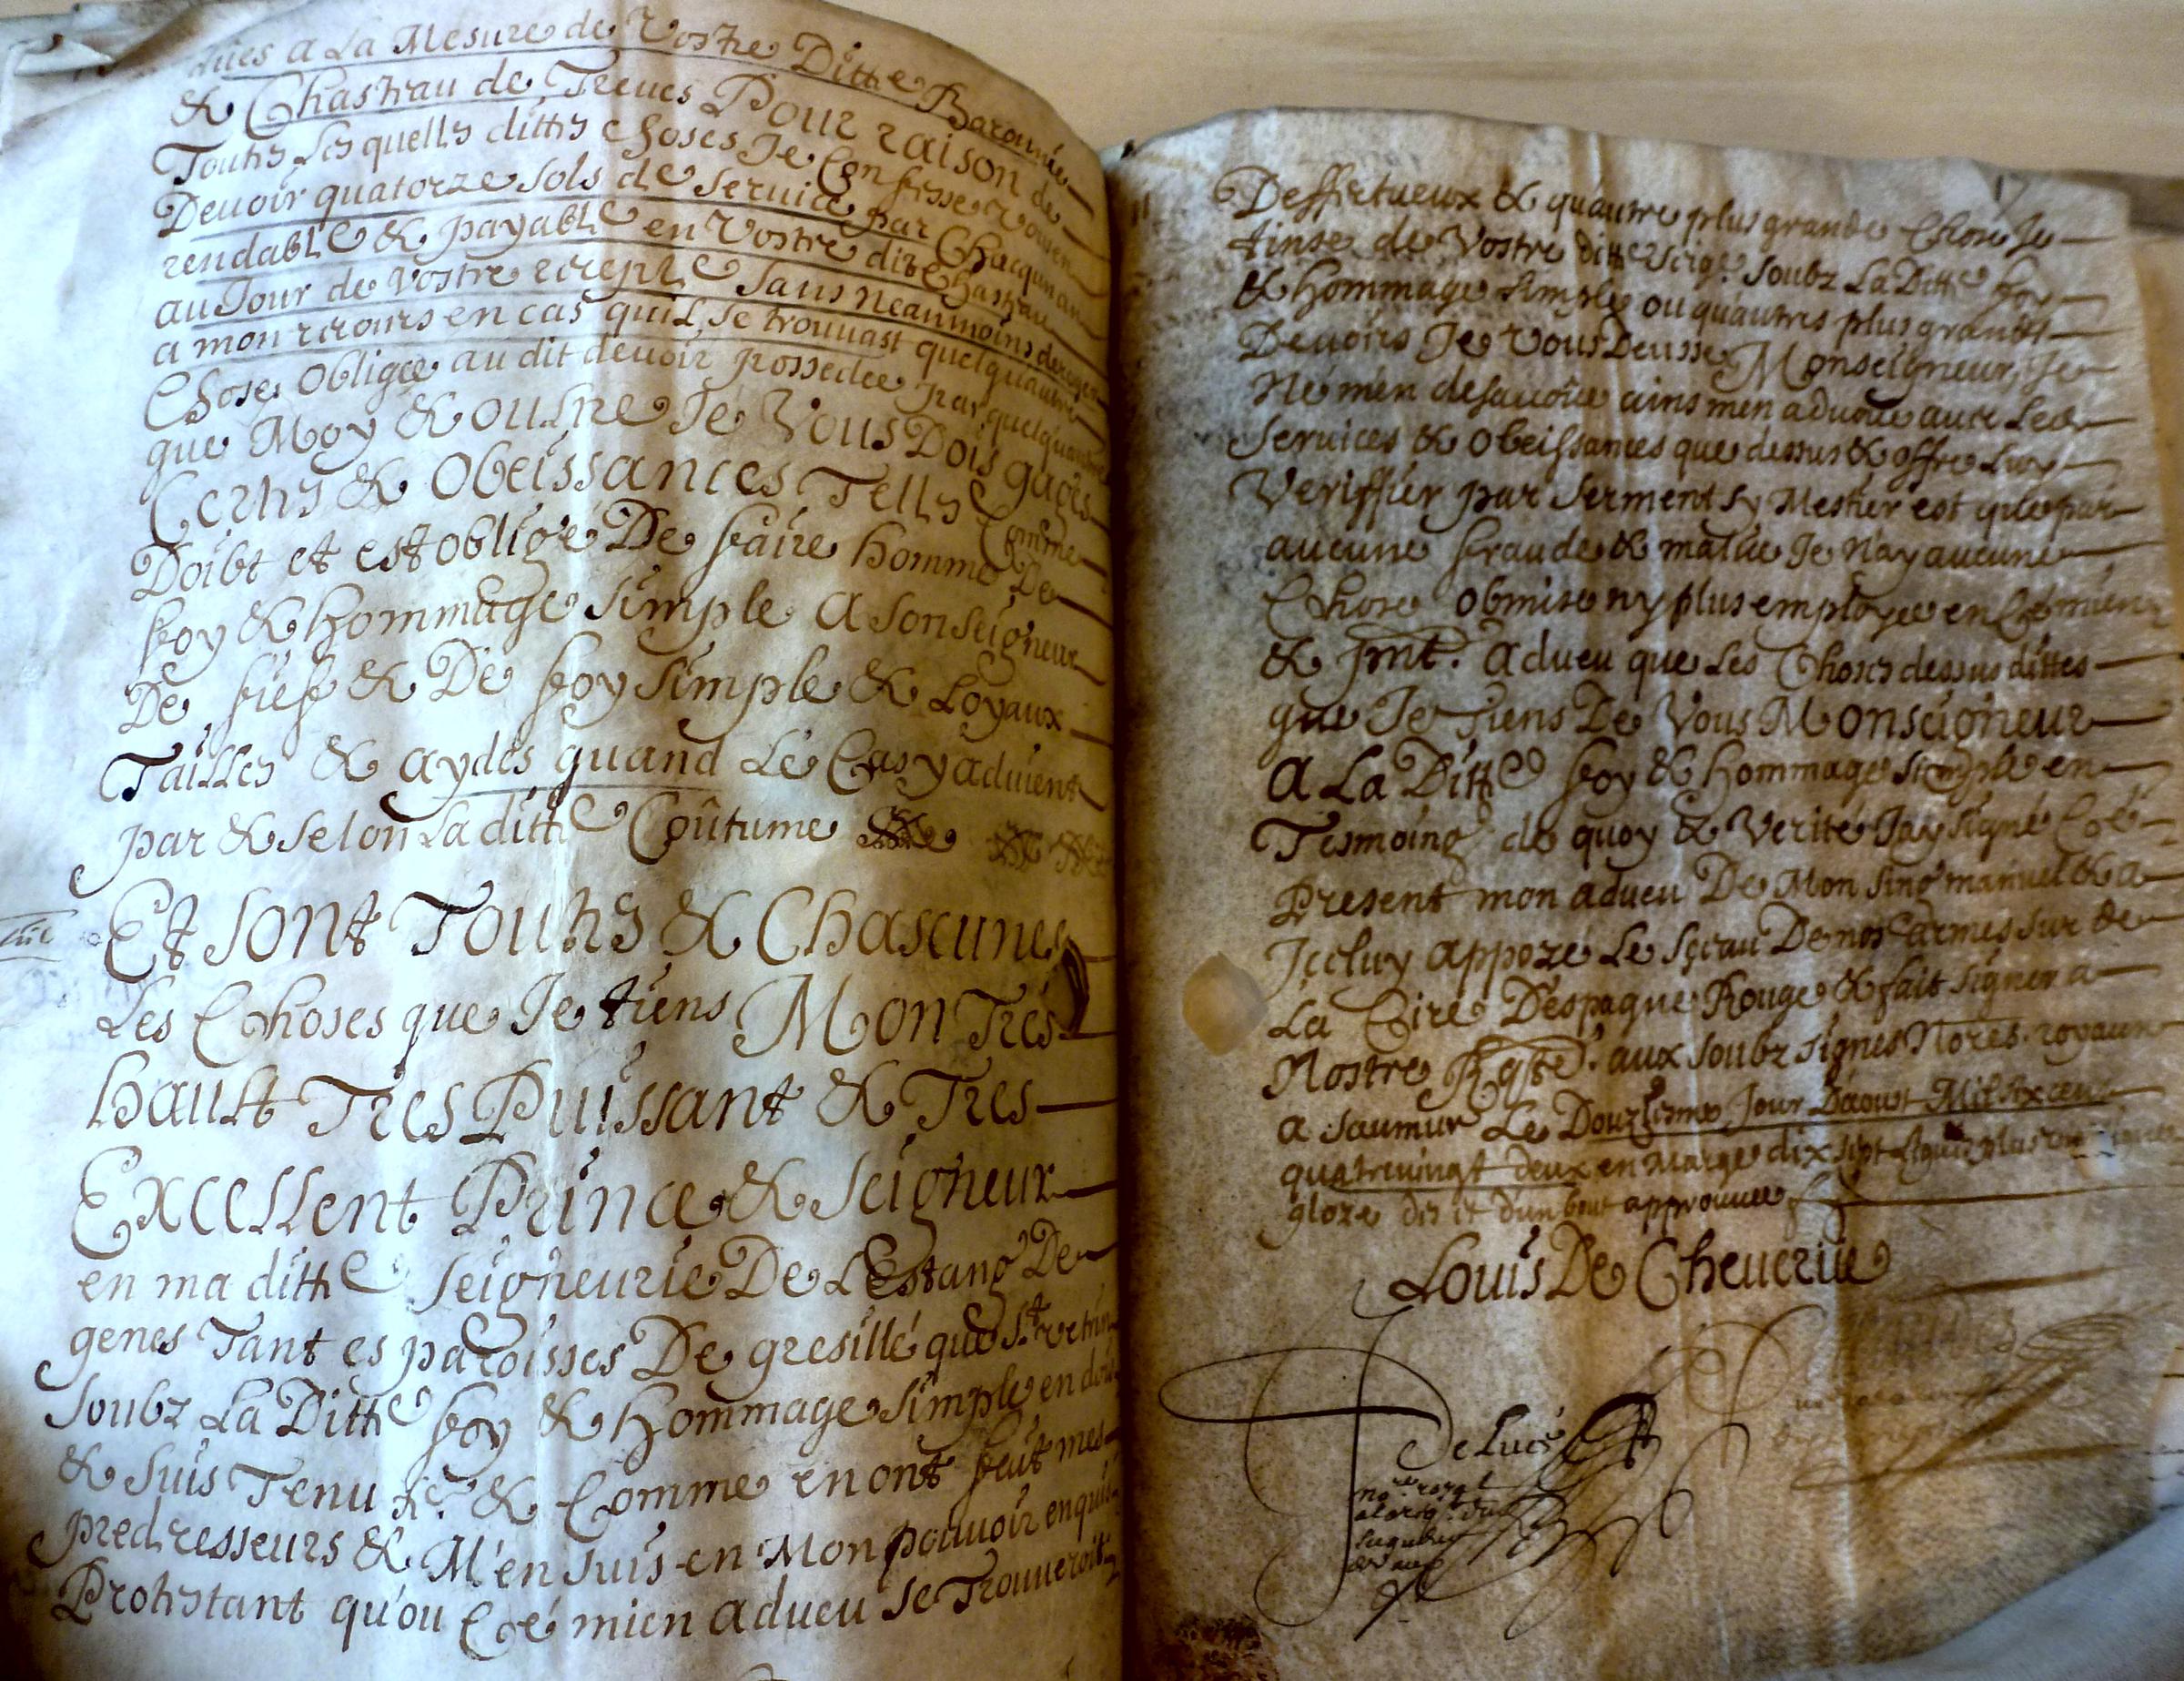 dues a La Mesure de Vostre Ditte Baronnie
& Chasteau de Treues Pour raison de
Touttes Les quelles dittes choses Je Confesse vous
Deuoir quatorze sols de seruice par Chacquun an
rendable & payable en Vostre dite Chasteau
au Jour de Vostre recepte sans neanmoins deroger
a mon recours en cas quil se trouuast quelquautre
Chose Obligee au dit deuoir possedee par quelquautre
que Moy & oultre Je Vous Dois gages
Certes & Obeissances Telles Comme
Doibt et est obligé De faire homme De
foy & hommage simple A son seigneur
De fief & De foy simple & Loyaux
Tailles & aydes quand Le Cas y aduient
par & selon La ditte Coûtume
Et sont Touttes & Chascunes
Les Choses que Je tiens Mon Tres
hault Tres Puissant & Tres
Excellent Prince & Seigneur
en ma ditte Seigneurie De Lestang De
genes Tant es paroisses De gresillé que St. vetrin
soubz La Ditte foy & hommage simple en
& suis Tenu fe. & Comme en ont fait mes
predecesseurs & M'en suis en Mon pouuoir enquis
Protestant qu'ou Cé mien adueu se Trouueroit
Deffectueux & quautre plus grande Chose Je
tinse de Vostre ditte seigrie. soubz La Ditte foy
& hommage simple ou quautres plus grandz
Deuoirs Je Vous Deusse Monseigneur, Je
Ne m'en desauoüe ains m'en aduoüe auec Les
seruices & obeissances que dessus & offre Luy
Veriffier par serment sy Mestier est que par
aucune fraude & malice Je N'ay aucune
Chose obmise ny plus employee en Cé mien
& pnt. adueu que Les Choses dessus dittes
que Je Tiens De Vous Monseigneur
A La Ditte foy & hommage simple en
Tesmoing de quoy & Verité Jay signé Cé
Present mon adueu De Mon sing manuel & a
Jceluy appozé Le sceau De nos armes sur de
La Cire D'espagne Rouge & fait signer a
Nostre Rqste. aux soubz signes Nores. royaux
a Saumur Le Douziesme Jour Daoust Mil six cent
quatreuingt deux en Marge dix sept
gloze dis et d'un bout approuuee
Louis De Cheuerue
De Lucé
nore royal